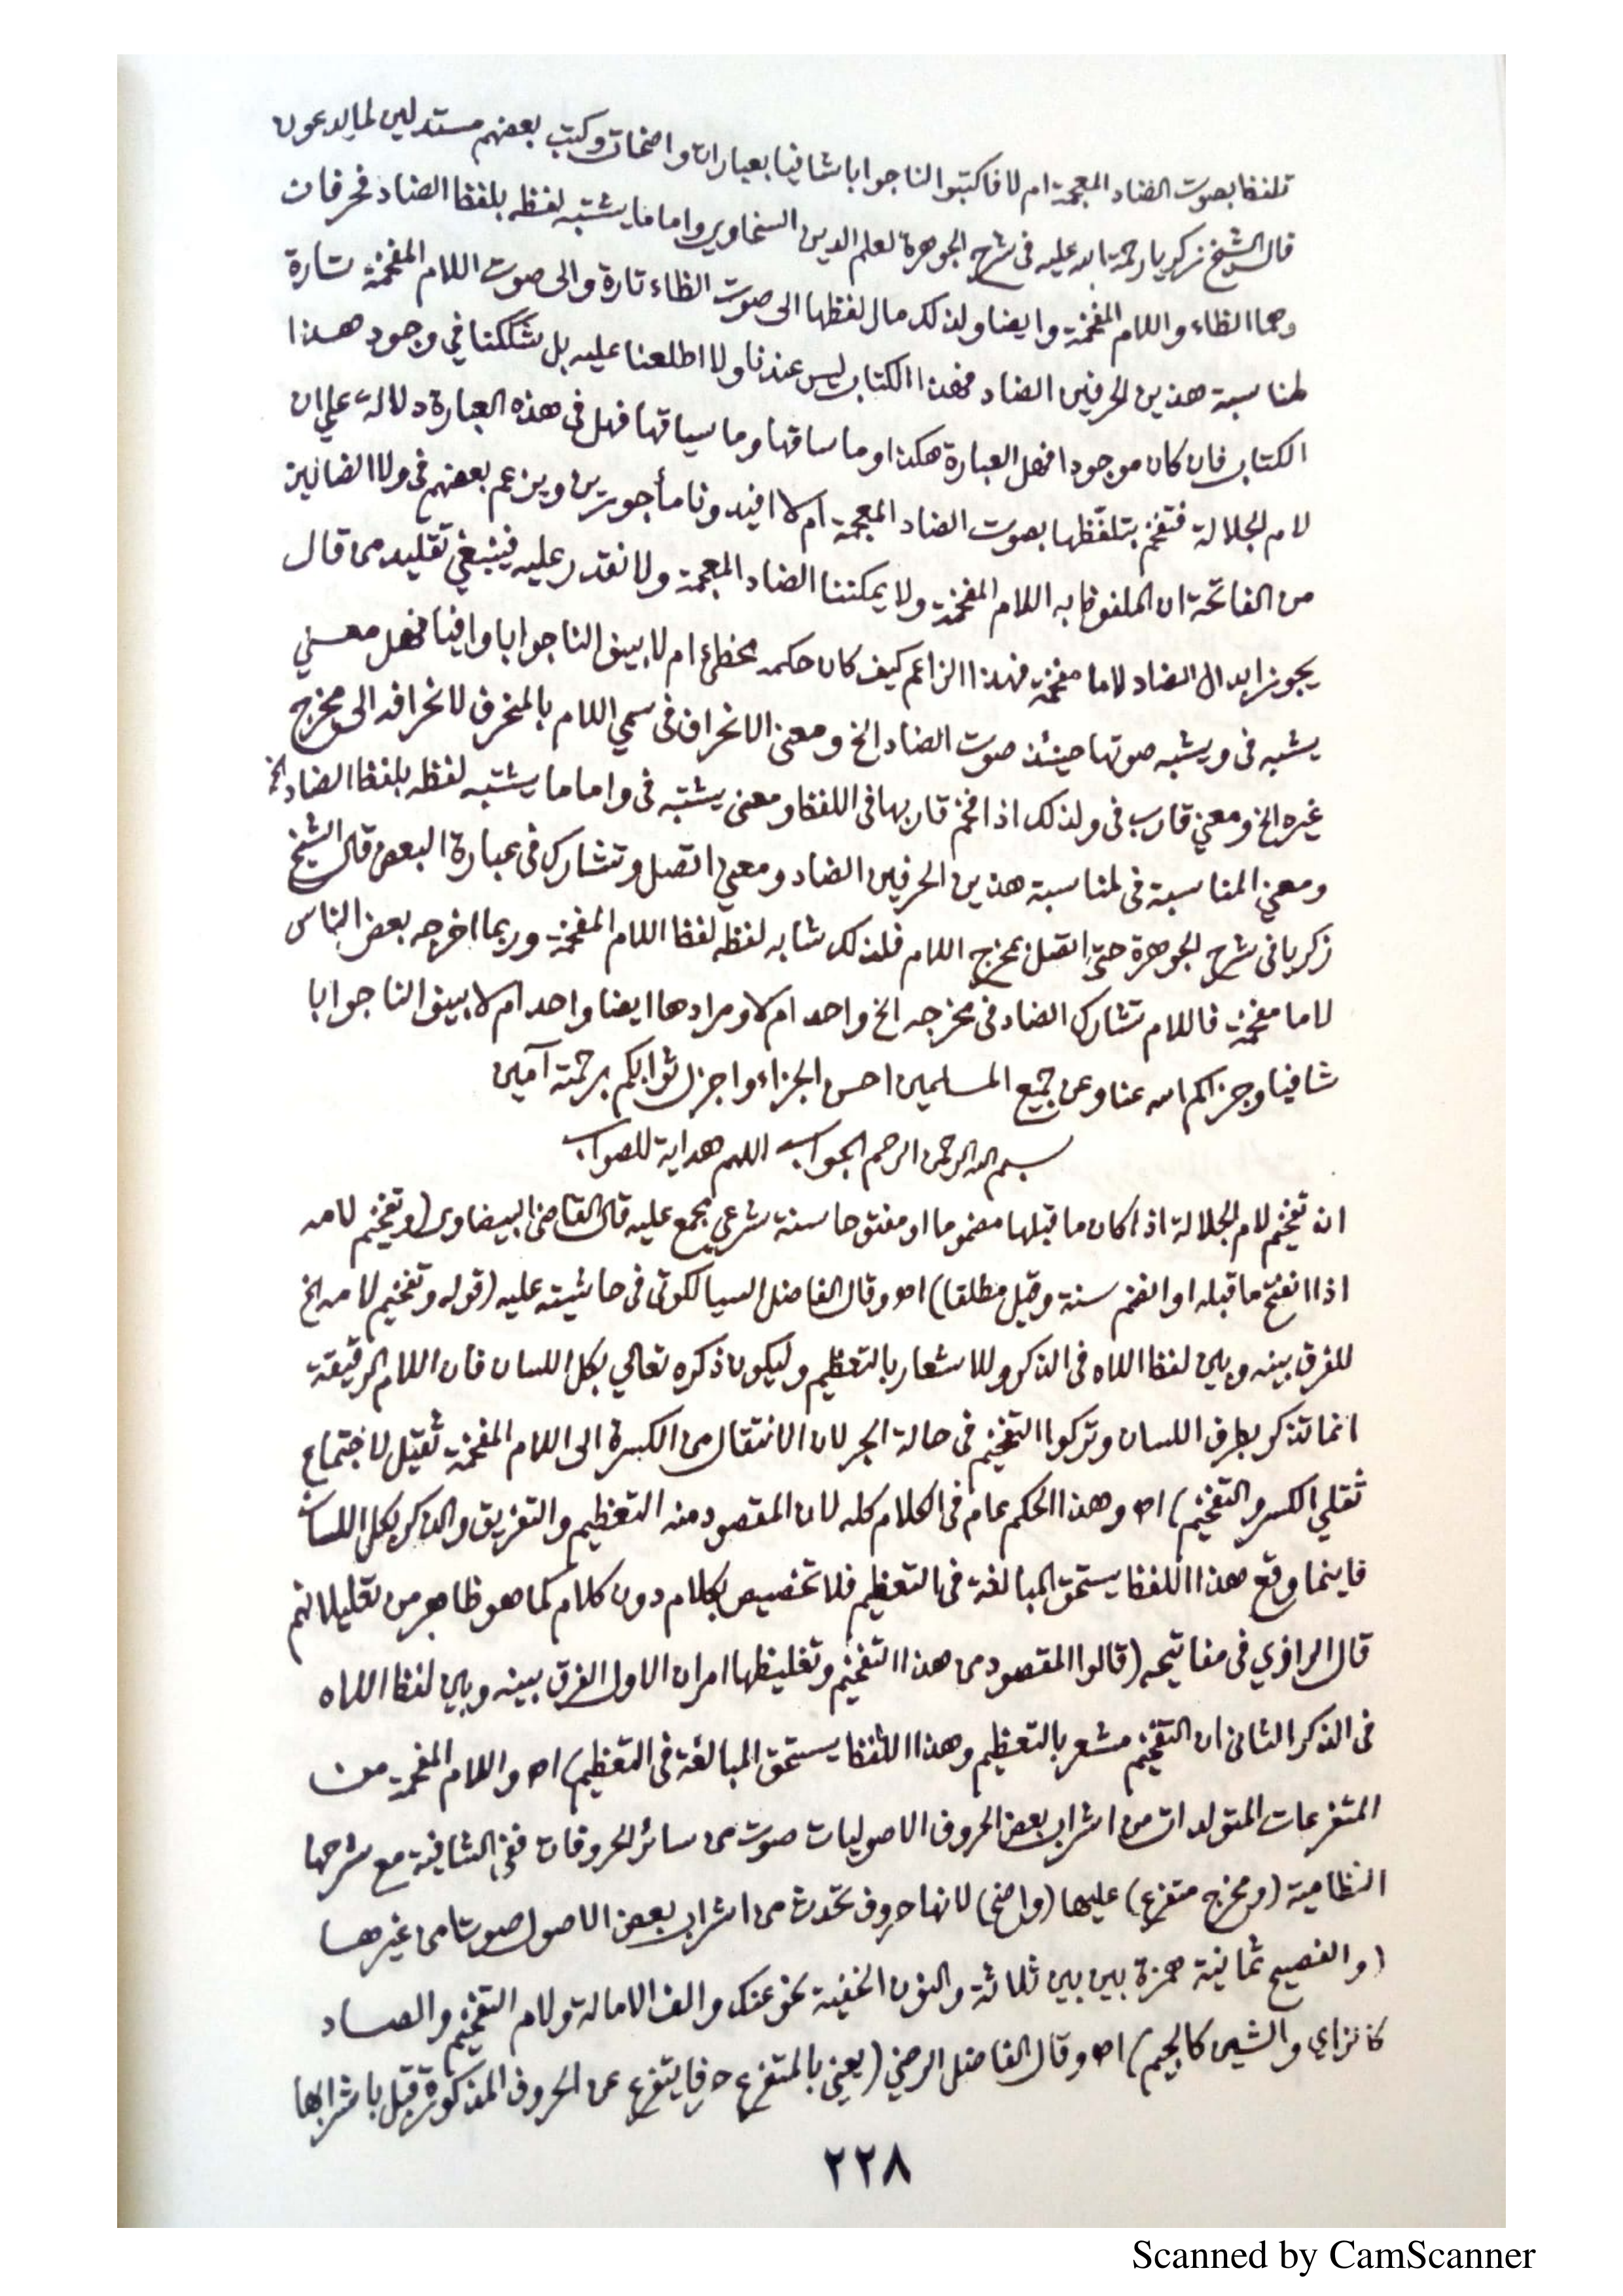 تلفظا بصوت الضاد المعجمة ام لا فاكتبوا لنا جوابا شافيا بعبارات واضحات وكتب بعضهم مستدلين لما يدعون
قال الشيخ زكريا رحمة الله عليه فى شرح الجوهرة لعلم الدين السخاوي واما ما يشتبه لفظه بلفظ الضاد فحرفان
وهما الظاء واللام المفخمة وايضا ولذلك مال لفظها الى صوت الظاء تارة والى صوت اللام المفخمة تارة
لمناسبة هذين الحرفين الضاد فهذا الكتاب ليس عندنا ولا اطلعنا عليه بل شككنا في وجود هذا
الكتاب فان كان موجودا فهل العبارة هكذا وما ساقها وما سياقها فهل فى هذه العبارة دلالة على ان
لام الجلالة فتفخم بتلفظها بصوت الضاد المعجمة ام لا افيدونا مأجورين ويزعم بعضهم فى ولا الضالين
من الفاتحة ان الملفوظ به اللام المفخمة ولا يمكننا الضاد المعجمة ولا نقدر عليه فينبغي تقليد من قال
يجوز ابدال الضاد لاما مفخمة فهذا الزاعم كيف كان حكمه مخطئ ام لا بينوا لنا جوابا وافيا فهل معنى
يشبه فى ويشبه صوتها حينئذ صوت الضاد الخ ومعنى الانحراف فى سمي اللام بالمنحرف لانحرافه الى مخرج
غيره الخ ومعنى قارب فى ولذلك اذا فخم قاربها فى اللفظ ومعنى يشتبه فى واما ما يشتبه لفظه بلفظ الضاد الخ
ومعنى المناسبة فى لمناسبة هذين الحرفين الضاد ومعنى اتصل وتشارك فى عبارة البعض قال الشيخ
زكريا فى شرح الجوهرة حتى اتصل بمخرج اللام فلذلك شابه لفظه لفظ اللام المفخمة وربما اخرجه بعض الناس
لاما مفخمة فاللام تشارك الضاد فى مخرجه الخ واحد ام لا ومرادها ايضا واحد ام لا بينوا لنا جوابا
شافيا وجزاكم الله عنا وعن جميع المسلمين احسن الجزاء واجزل ثوابكم برحمته آمين
بسم الله الرحمن الرحيم الجواب اللهم هداية للصواب
ان تفخيم لام الجلالة اذا كان ما قبلها مضموما او مفتوحا سنة شرعي مجمع عليه قال القاضى البيضاوى (وتفخيم لامه
اذا انفتح ما قبله او انضم سنة وقيل مطلقا) اه وقال الفاضل السيالكوتي فى حاشيته عليه (قوله وتفخيم لامه الخ
للفرق بينه وبين لفظ اللاه فى الذكر وللاشعار بالتعظيم وليكون ذكره تعالي بكل اللسان فان اللام الرقيقة
انما تذكر بطرف اللسان وتركوا التفخيم فى حالة الجر لان الانتقال من الكسرة الى اللام المفخمة ثقيل لاجتماع
ثقلي الكسر والتفخيم) اه وهذا الحكم عام فى الكلام كله لان المقصود منه التعظيم والتفريق والذكر بكل اللسان
فاينما وقع هذا اللفظ يستحق المبالغة فى التعظيم فلا تخصيص بكلام دون كلام كما هو ظاهر من تعليلاتهم
قال الرازي فى مفاتيحه (قالوا المقصود من هذا التفخيم وتغليظها امران الاول الفرق بينه وبين لفظ اللاه
فى الذكر الثانى ان التفخيم مشعر بالتعظيم وهذا اللفظ يستحق المبالغة فى التعظيم) اه واللام المفخمة من
المتفرعات المتولدات من اشراب بعض الحروف الاصوليات صوت من سائر الحروفات ففى الشافية مع شرحها
النظامية (ومخرج متفرع) عليها (واضح) لانها حروف تحدث من اشراب بعض الاصول صوتا من غيرها
(والفصيح ثمانية همزة بين بين ثلاثة والنون الخفية نحو عنك والف الامالة ولام التفخيم والصاد
كالزاي والشين كالجيم) اه وقال الفاضل الرضي (يعنى بالمتفرع حرفا يتفرع عن الحروف المذكورة قبل باشرابها
٢٢٨
Scanned by CamScanner